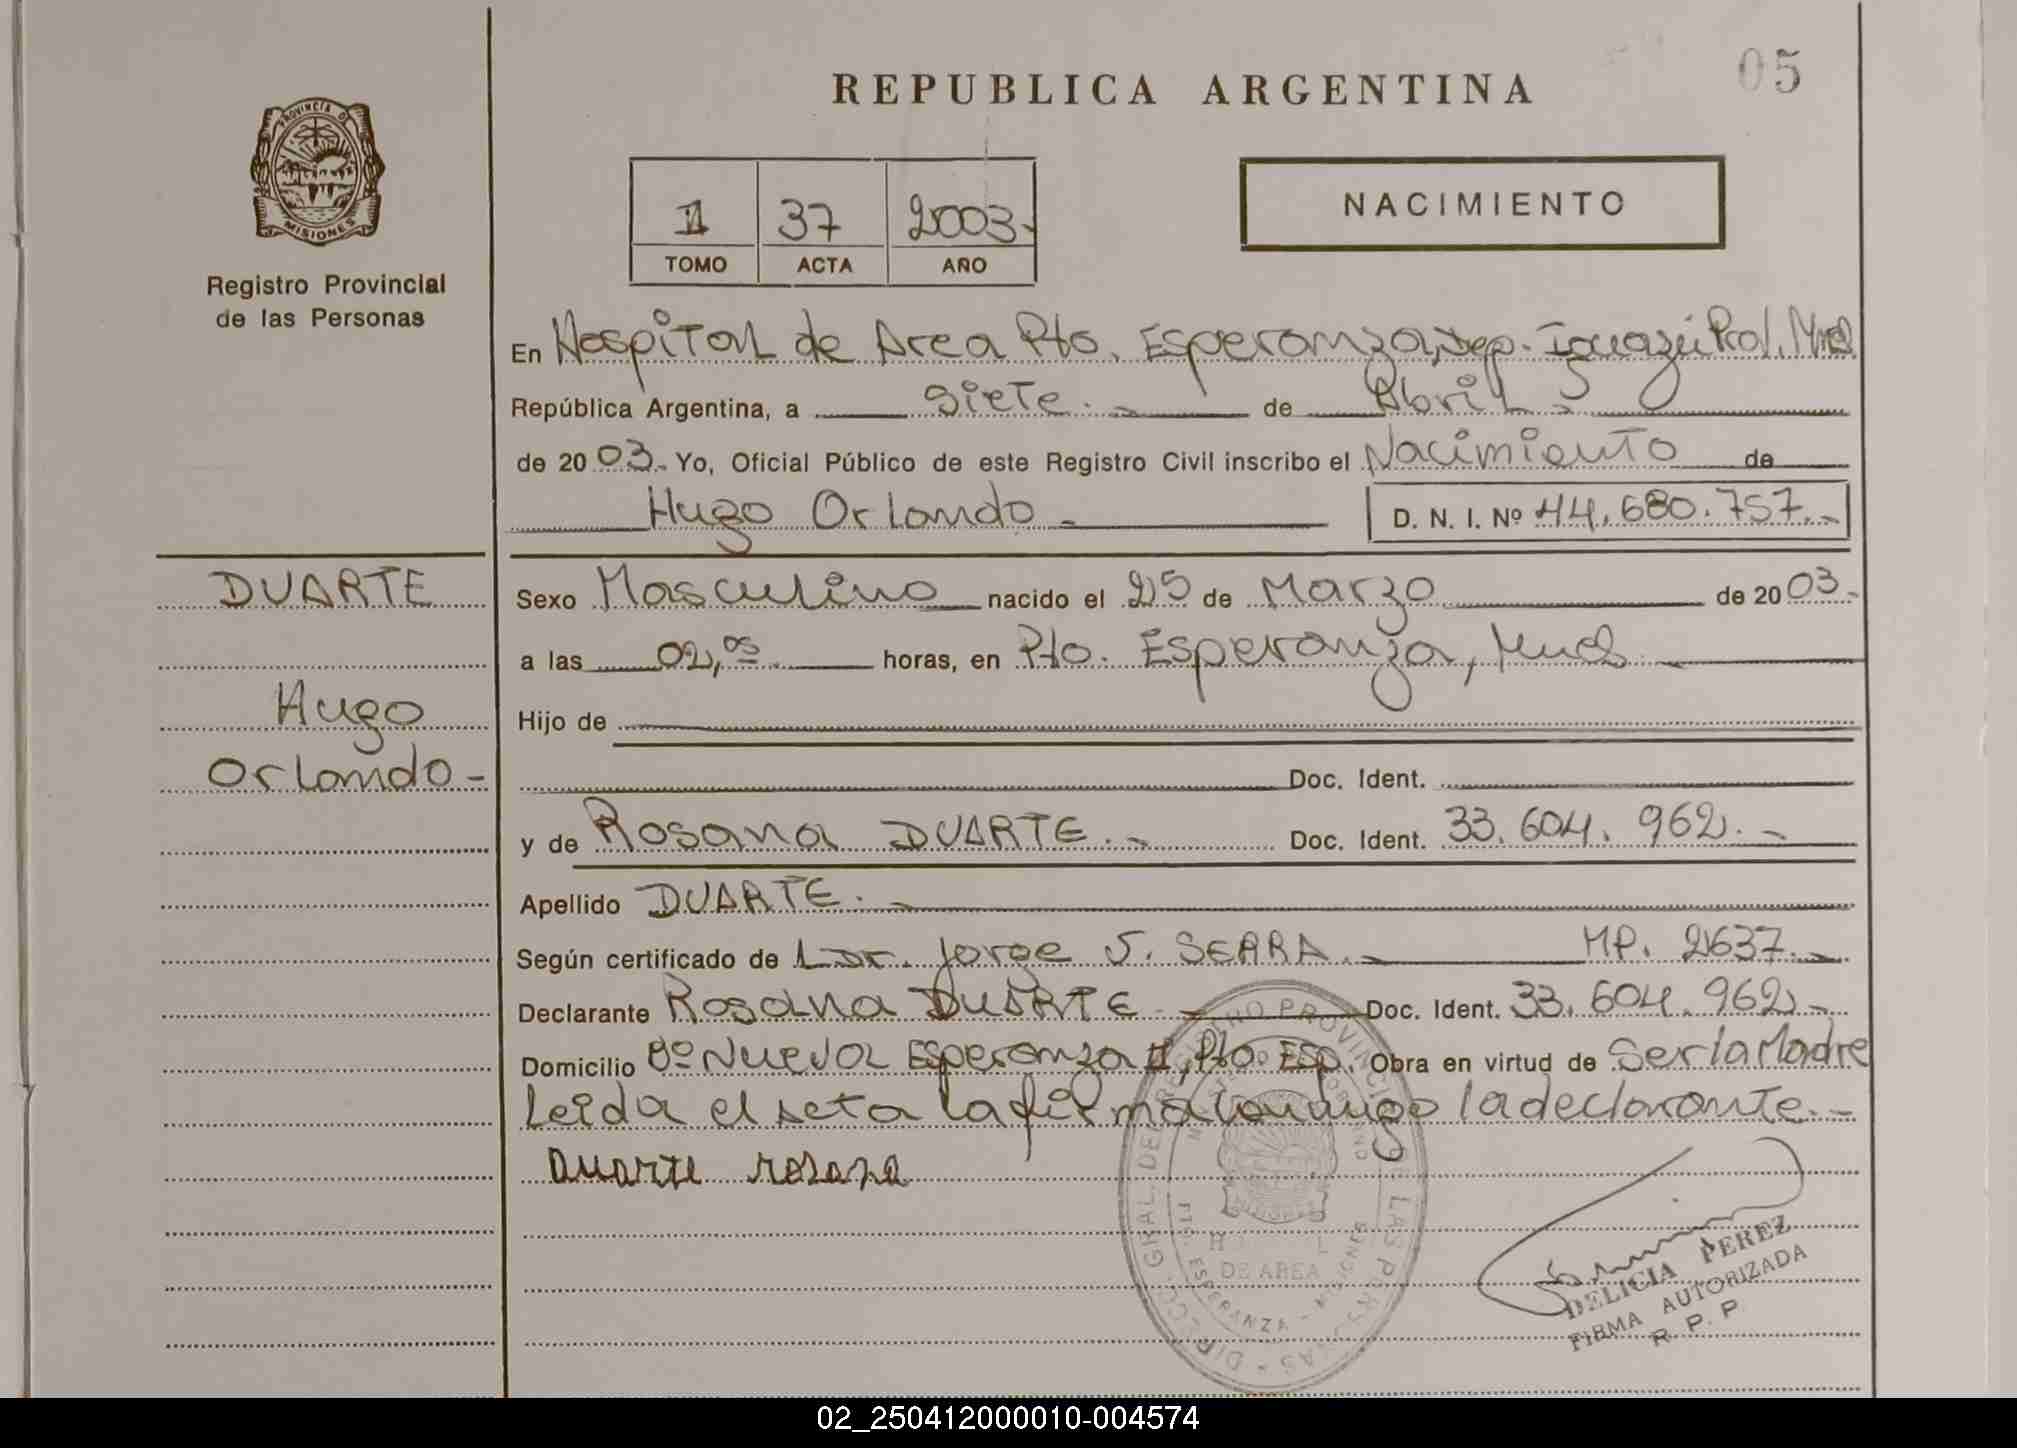 05
REPUBLICA ARGENTINA
PROVINCIA DE
MISIONES
Registro Provincial
de las Personas
1 37 2003.
TOMO ACTA AÑO
NACIMIENTO
En Hospital de Area Pto. Esperanza, Dep. Iguazú
República Argentina, a siete.- de Abril -
de 20 03.- Yo, Oficial Público de este Registro Civil inscribo el Nacimiento de
Hugo Orlando - D. N. I. Nº 44.680.757.-
DUARTE
Hugo
Orlando-
Sexo Masculino nacido el 25 de Marzo de 20 03.-
a las 02,05 horas, en Pto. Esperanza, -
Hijo de
Doc. Ident.
y de Rosana DUARTE.- Doc. Ident. 33.604.962.-
Apellido DUARTE.-
Según certificado de Dr. Jorge S. SERRA.- MP. 2637.-
Declarante Rosana DUARTE - Doc. Ident. 33.604.962-
Domicilio Bº Nueva Esperanza II, Pto Esp. Obra en virtud de ser la Madre
Leida el acta la firma conmigo la declarante.-
Duarte rosana
DE AREA
ESPERANZA - MISIONES
DELICIA PEREZ
FIRMA AUTORIZADA
R. P. P
02_250412000010-004574